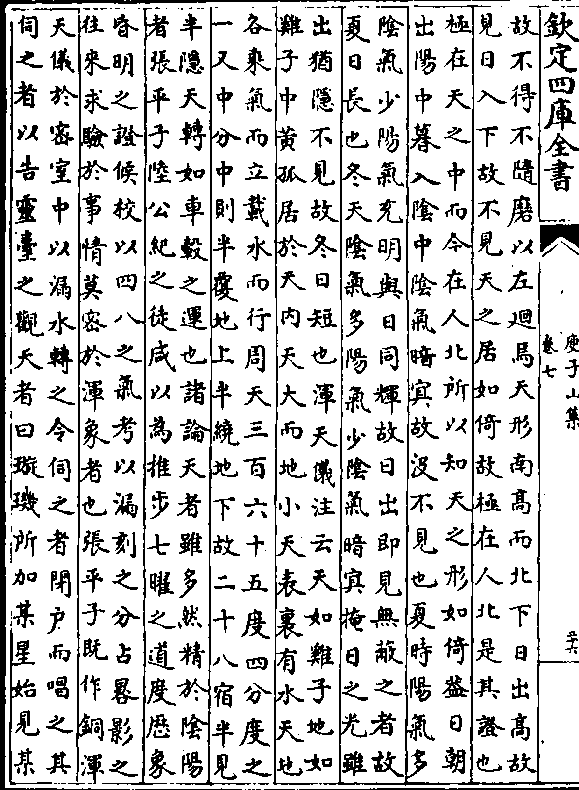 欽定四庫全書
庾子山集
卷七
二十六
故不得不隨磨以左迴焉天形南高而北下日出高故
見日入下故不見天之居如倚故極在人北是其證也
極在天之中而今在人北所以知天之形如倚葢日朝
出陽中暮入陰中陰氣暗冥故沒不見也夏時陽氣多
陰氣少陽氣充明與日同輝故日出即見無蔽之者故
夏日長也冬天陰氣多陽氣少陰氣暗冥掩日之光雖
出猶隠不見故冬日短也渾天儀注云天如雞子地如
雞子中黄孤居於天内天大而地小天表裏有水天地
各乘氣而立載水而行周天三百六十五度四分度之
一又中分中則半覆地上半繞地下故二十八宿半見
半隠天轉如車轂之運也諸論天者雖多然精於陰陽
者張平子陸公紀之徒咸以為推步七曜之道度歴象
昏明之證候校以四八之氣考以漏刻之分占晷影之
往來求驗於事情莫密於渾象者也張平子既作銅渾
天儀於密室中以漏水轉之令伺之者閉户而唱之其
伺之者以告靈臺之觀天者曰璇璣所加某星始見某